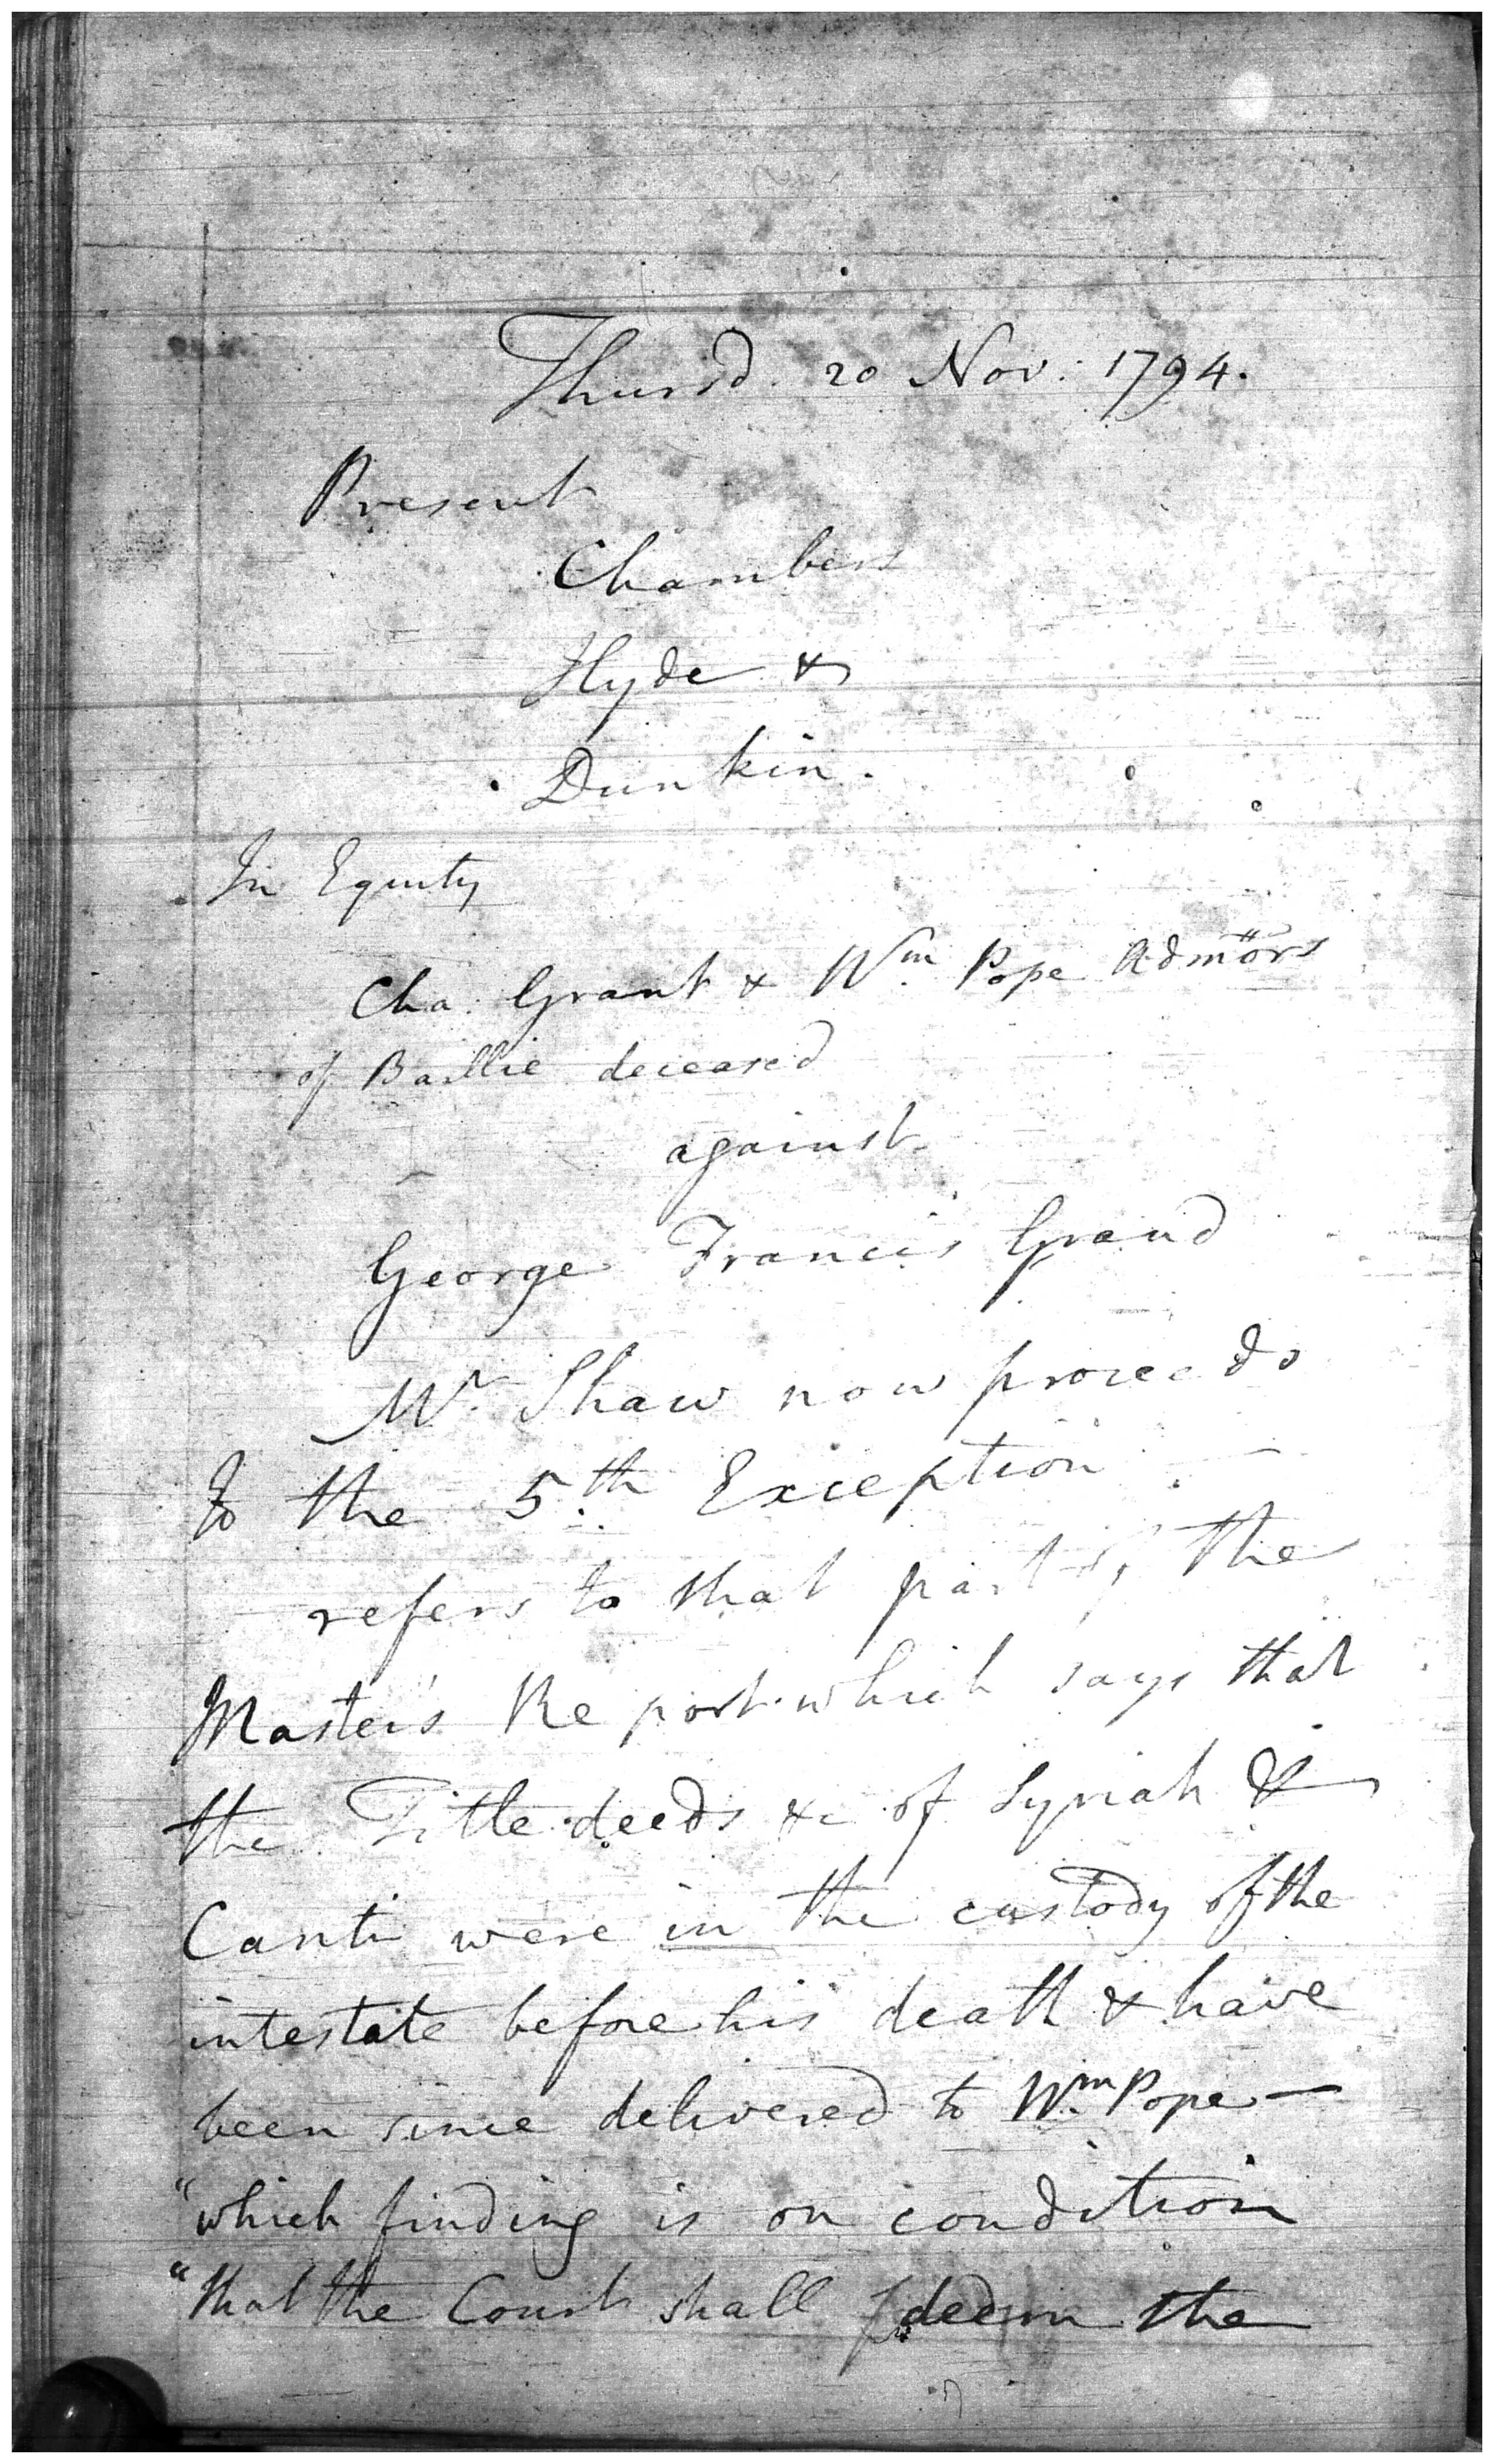 Thursd. 20 Nov: 1794.
Present
Chambers
Hyde &
Dunkin.
In Equity
Cha. Grant & Wm. Pope Admors
of Baillie deceased
against
George Francis Grand
Mr. Shaw now proceeds
to the 5.th Exception —
refers to that part of the
Master's Report which says that
the Title deeds &c of Syriah &
Canti were in the custody of the
intestate before his death & have
been since delivered to Wm. Pope —
"which finding is on condition
"that the Court shall deem the